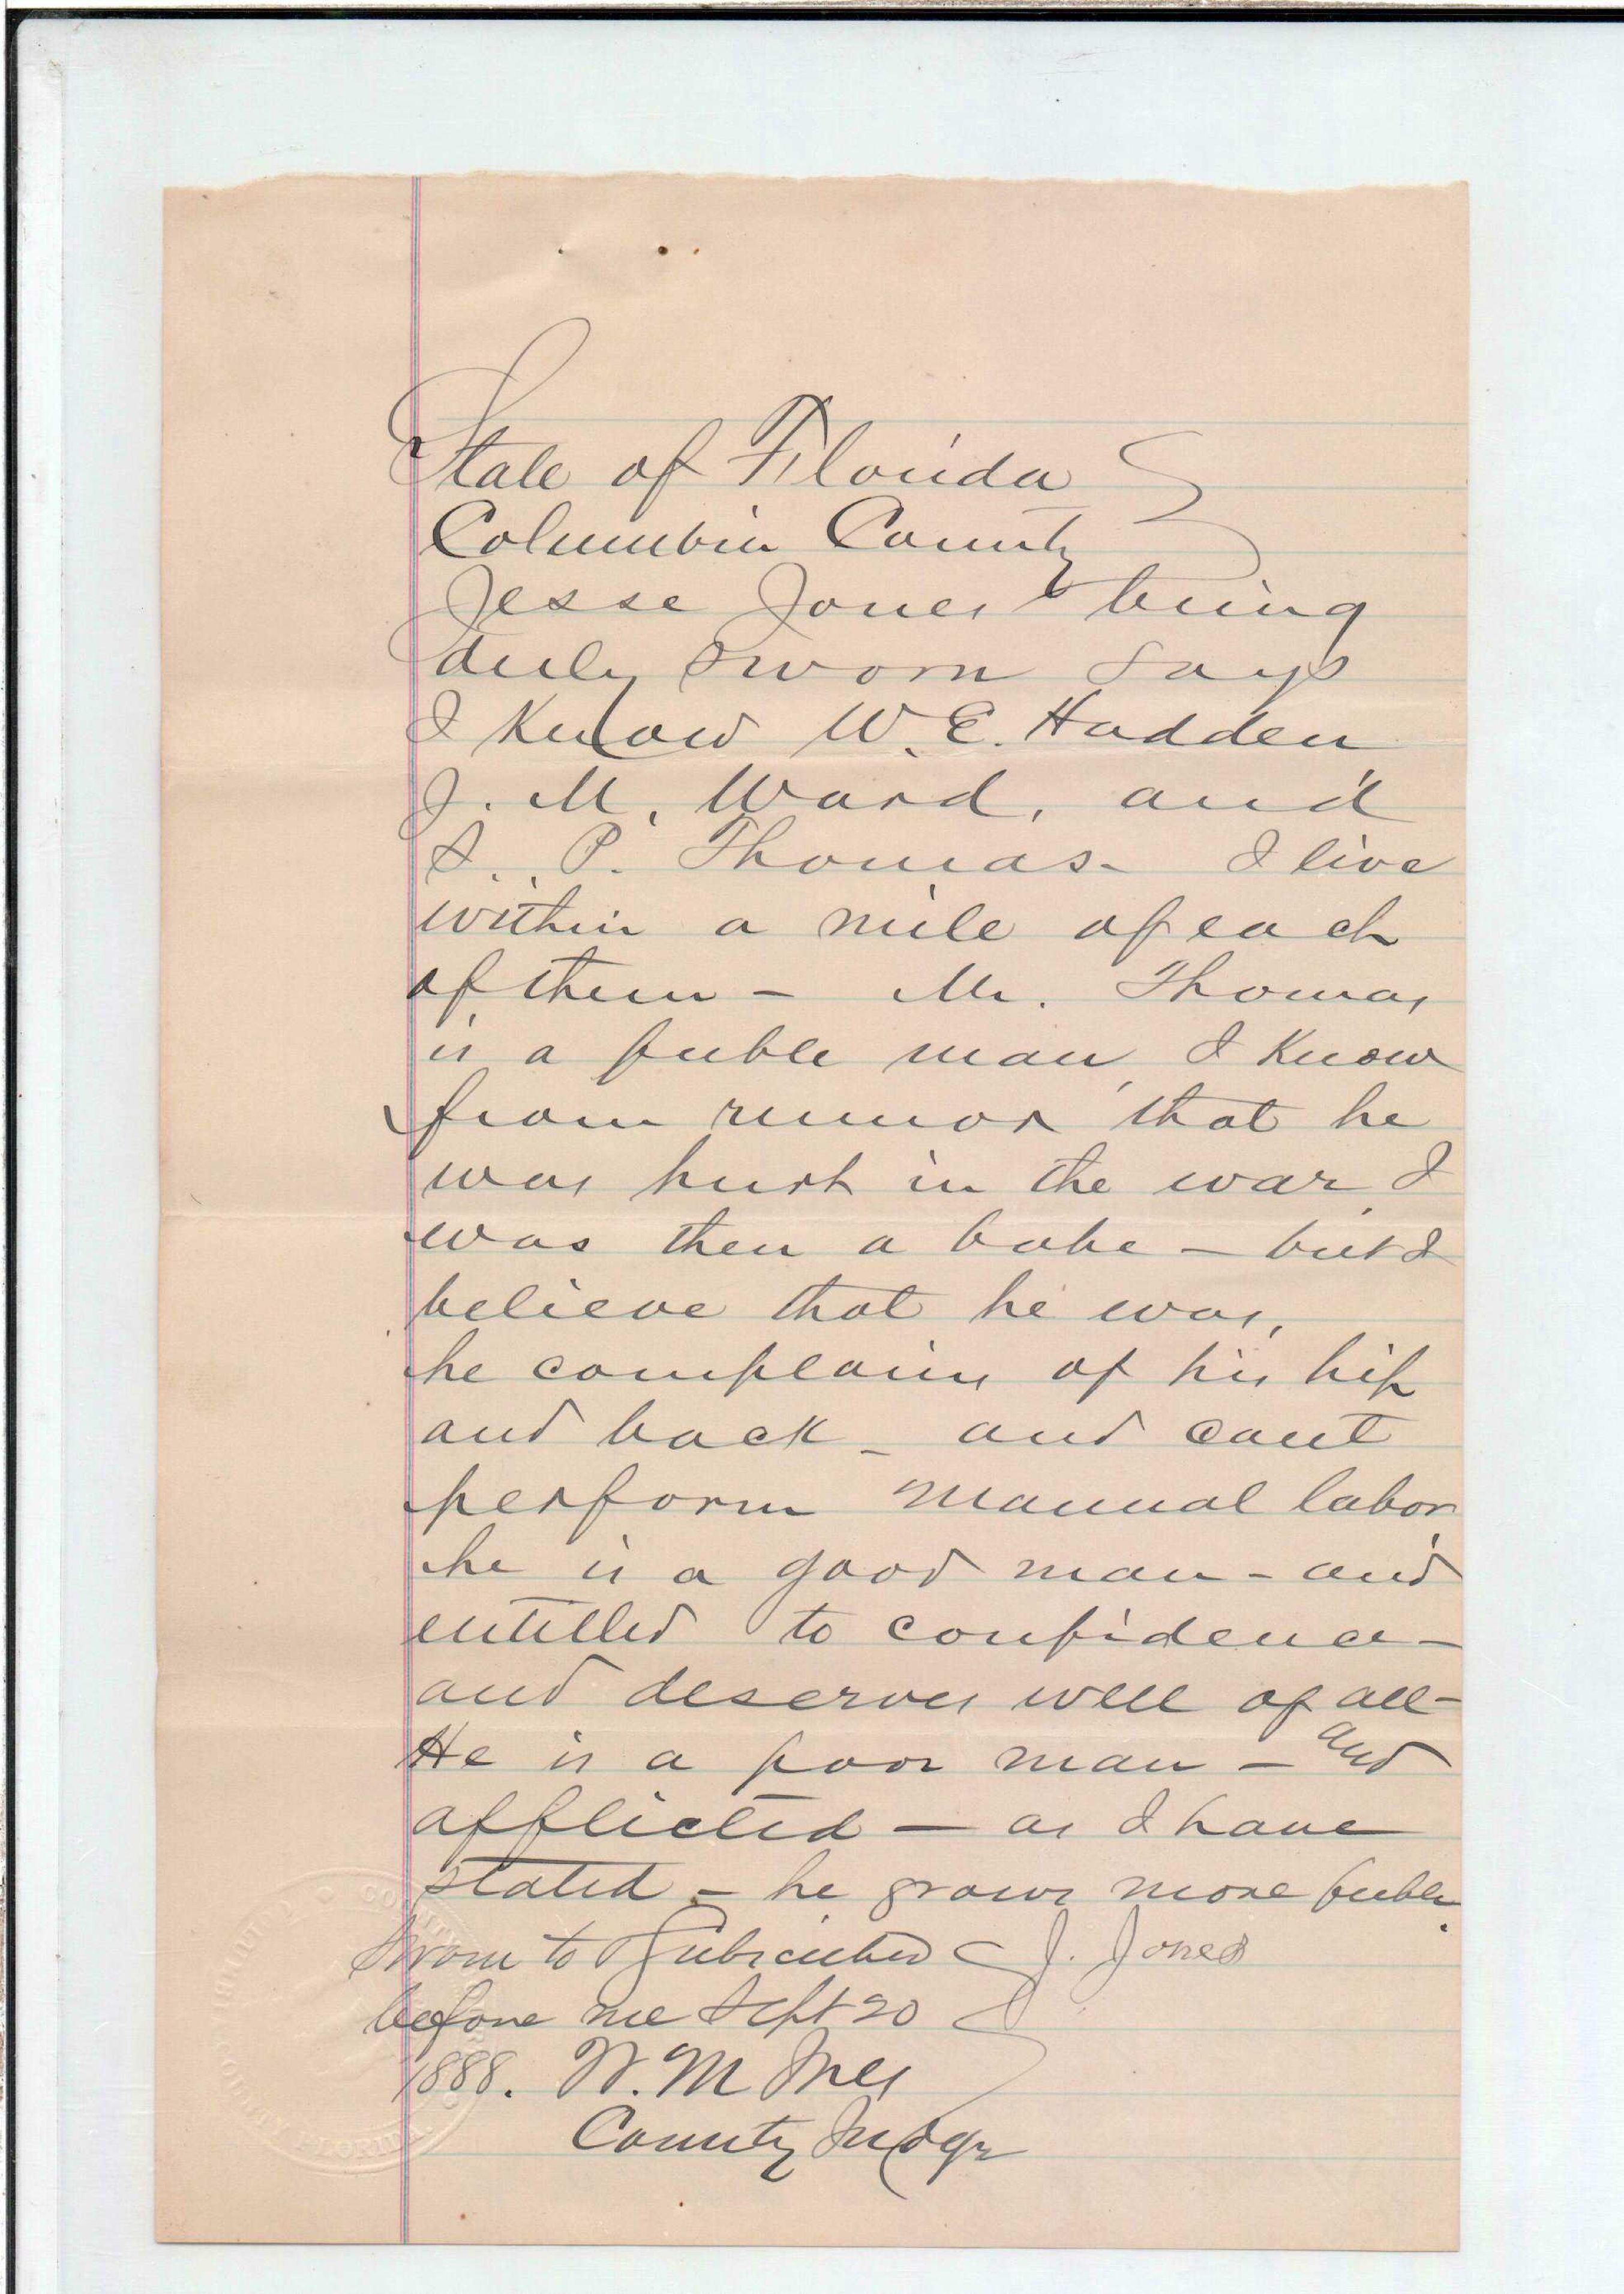 State of Florida
Columbia County
Jesse Jones being
duly sworn says
I Know W. E. Hadden
J. M. Ward, and
S. P. Thomas - I live
within a mile of each
of them - Mr. Thomas
is a feeble man, I Know
from rumor that he
was hurt in the war, I
was then a babe - but I
believe that he was,
he complains of his hip
and back - and cant
perform manual labor
he is a good man - and
entitled to confidence -
and deserves well of all -
He is a poor man - and
afflicted - as I have
stated - he grows more feeble.
Sworn to & Subscribed J. Jones
before me Sept 20
1888. W. M Ives
County Judge
COUNTY
FLORIDA